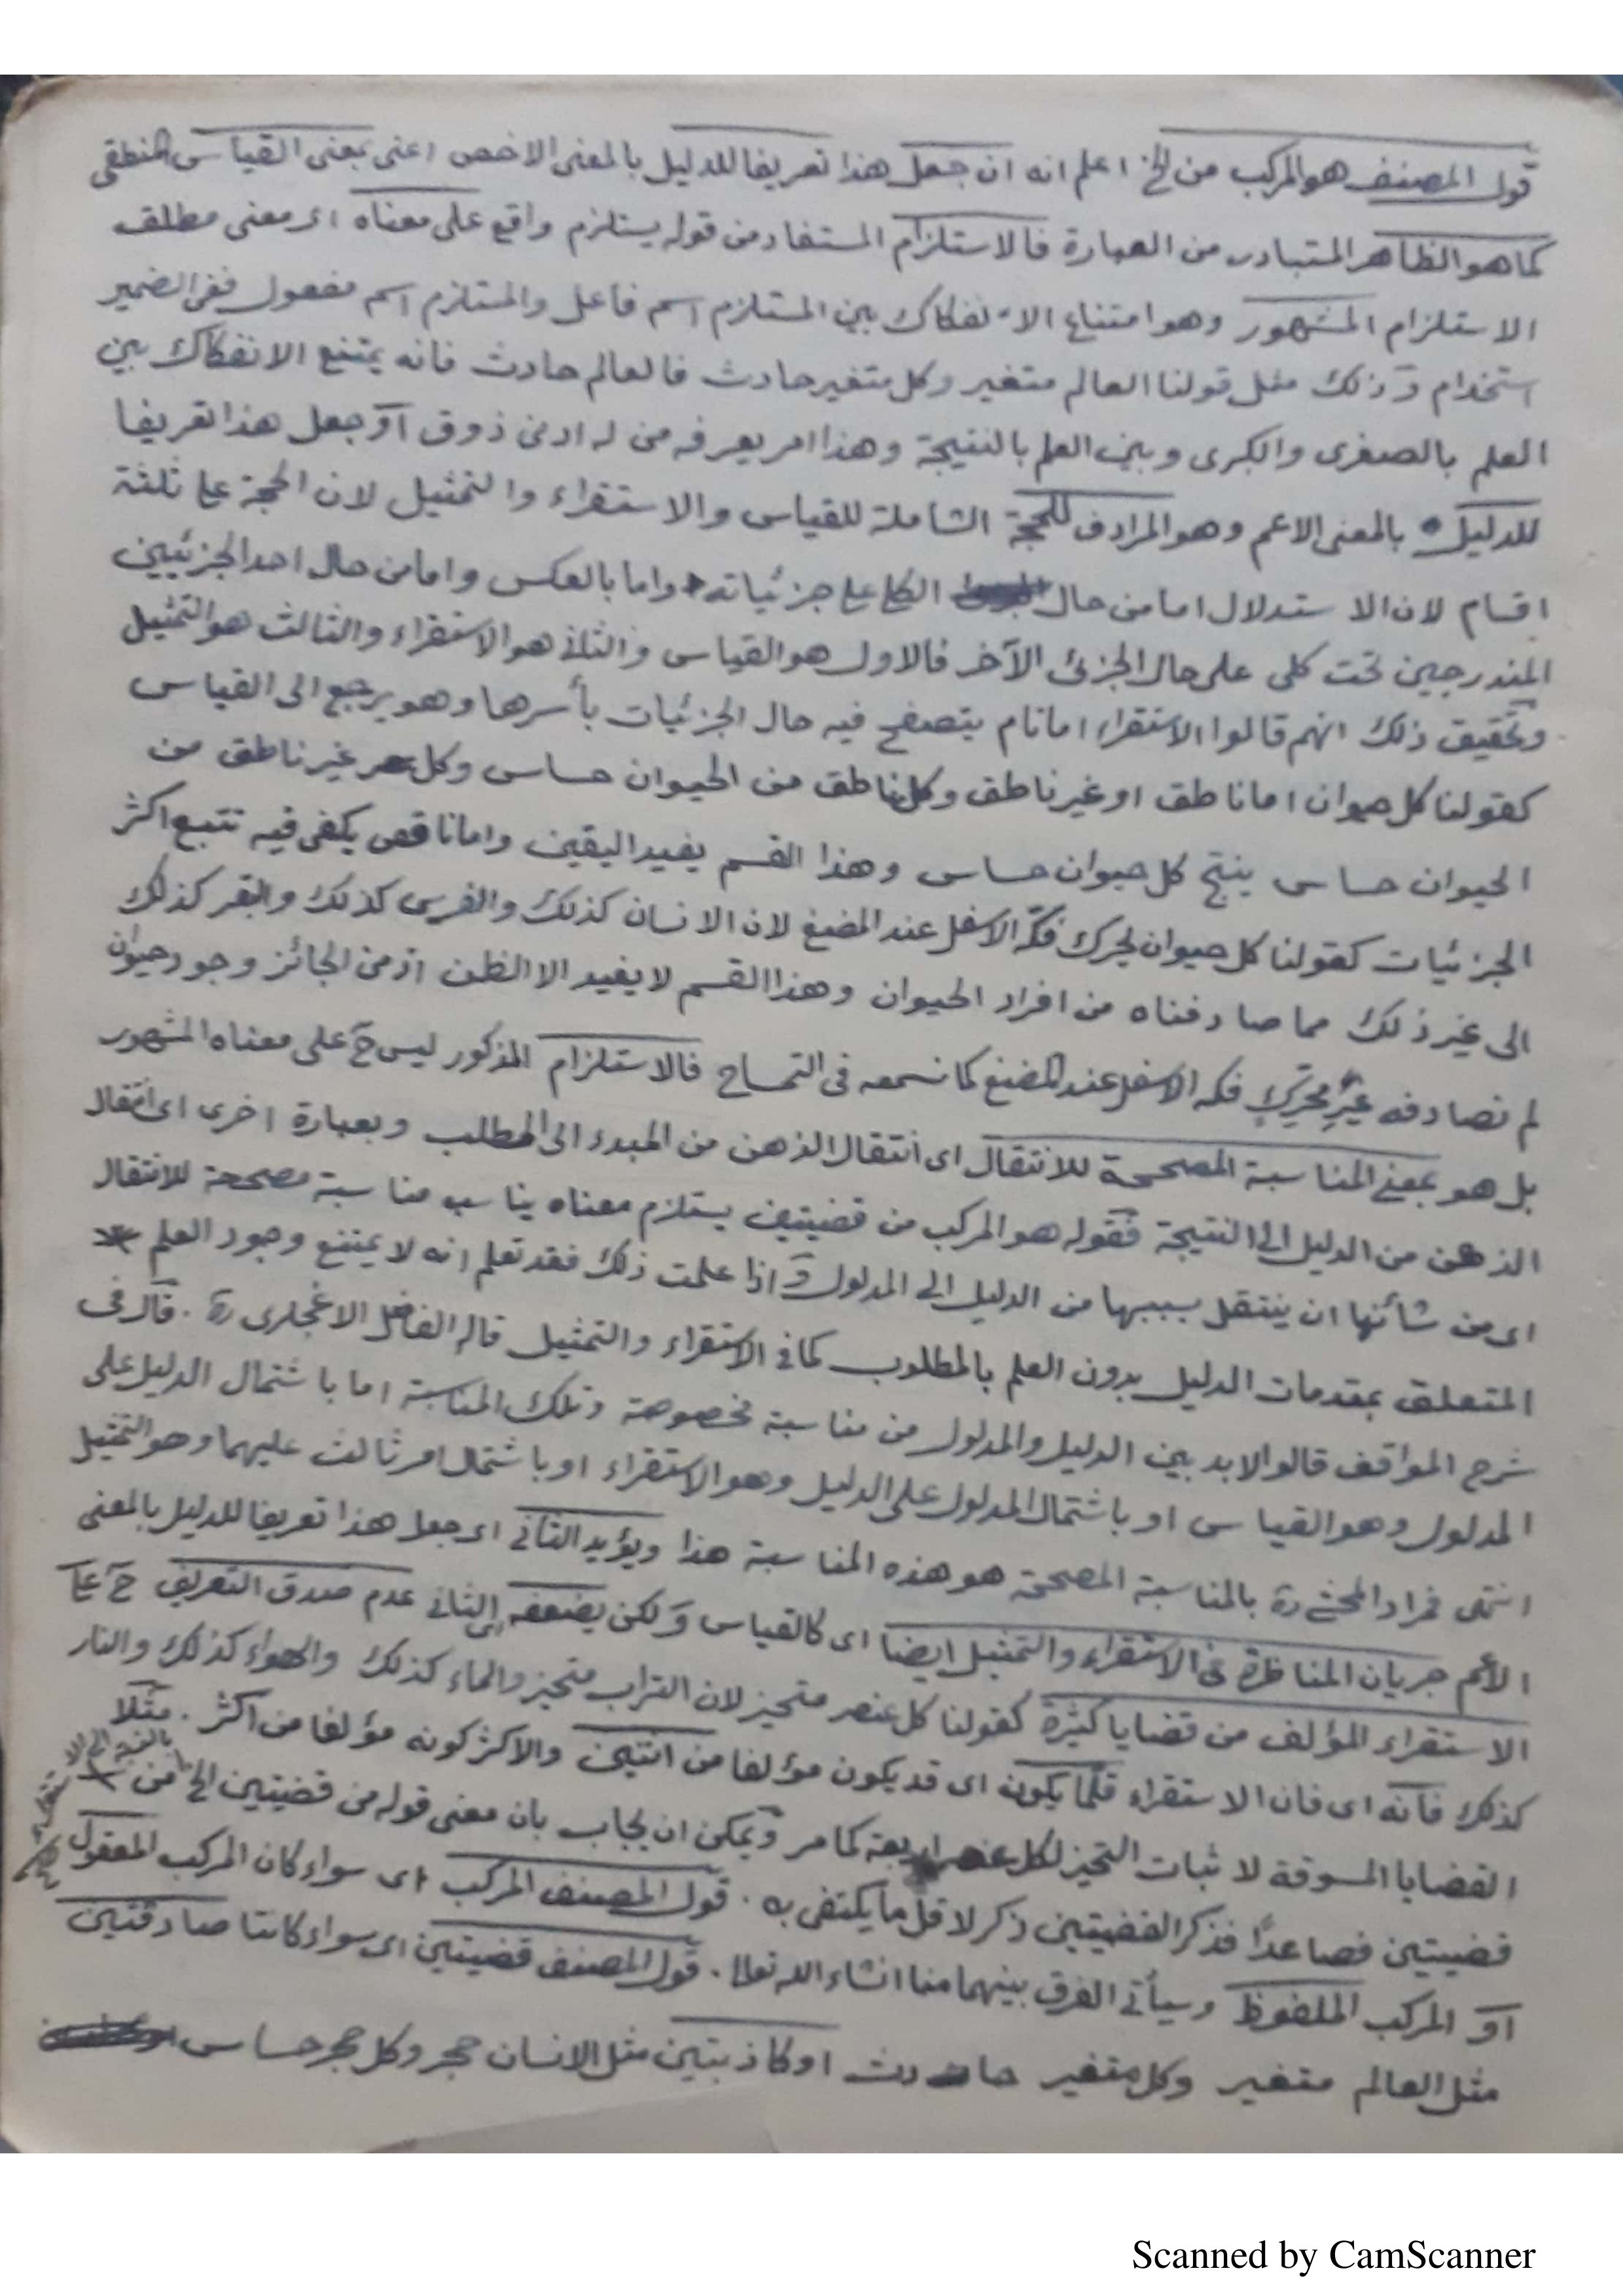 قول المصنف هو المركب من الخ اعلم انه ان جعل هذا تعريفا للدليل بالمعنى الاخص اعنى بمعنى القياس المنطقى
كما هو الظاهر المتبادر من العبارة فالاستلزام المستفاد من قوله يستلزم واقع على معناه اى معنى مطلق
الاستلزام المشهور وهو امتناع الانفكاك بين المستلزم اسم فاعل والمستلزم اسم مفعول ففى الضمير
استخدام وذلك مثل قولنا العالم متغير وكل متغير حادث فالعالم حادث فانه يمتنع الانفكاك بين
العلم بالصغرى والكبرى وبين العلم بالنتيجة وهذا امر يعرفه من له ادنى ذوق او جعل هذا تعريفا
للدليل بالمعنى الاعم وهو المرادف للحجة الشاملة للقياس والاستقراء والتمثيل لان الحجة على ثلثة
اقسام لان الاستدلال اما من حال الكلى على جزئياته واما بالعكس واما من حال احد الجزئيين
المندرجين تحت كلى على حال الجزئ الآخر فالاول هو القياس والثانى هو الاستقراء والثالث هو التمثيل
وتحقيق ذلك انهم قالوا الاستقراء اما تام يتصفح فيه حال الجزئيات بأسرها وهو يرجع الى القياس
كقولنا كل حيوان اما ناطق او غير ناطق وكل ناطق من الحيوان حساس وكل غير ناطق من
الحيوان حساس ينتج كل حيوان حساس وهذا القسم يفيد اليقين واما ناقص يكفى فيه تتبع اكثر
الجزئيات كقولنا كل حيوان يحرك فكّه الاسفل عند المضغ لان الانسان كذلك والفرس كذلك والبقر كذلك
الى غير ذلك مما صادفناه من افراد الحيوان وهذا القسم لا يفيد الا الظن اذ من الجائز وجود حيوان
لم نصادفه غير محرك فكه الاسفل عند المضغ كما نسمعه فى التمساح فالاستلزام المذكور ليس ح على معناه المشهور
بل هو بمعنى المناسبة المصححة للانتقال اى انتقال الذهن من المبدء الى المطلب وبعبارة اخرى اى انتقال
الذهن من الدليل الى النتيجة فقوله هو المركب من قضيتين يستلزم معناه يناسب مناسبة مصححة للانتقال
اى من شأنها ان ينتقل بسببها من الدليل الى المدلول واذا علمت ذلك فقد تعلم انه لا يمتنع وجود العلم
المتعلق بمقدمات الدليل بدون العلم بالمطلوب كما فى الاستقراء والتمثيل قاله الفاضل الاغجلرى ره . قال فى
شرح المواقف قالوا لابد بين الدليل والمدلول من مناسبة مخصوصة وتلك المناسبة اما باشتمال الدليل على
المدلول وهو القياس او باشتمال المدلول على الدليل وهو الاستقراء او باشتمال امر ثالث عليهما وهو التمثيل
انتهى فمراد المحشى ره بالمناسبة المصححة هو هذه المناسبة هذا ويؤيد الثانى اى جعل هذا تعريفا للدليل بالمعنى
الاعم جريان المناظرة فى الاستقراء والتمثيل ايضا اى كالقياس ولكن يضعفه اى الثانى عدم صدق التعريف ح على
الاستقراء المؤلف من قضايا كثيرة كقولنا كل عنصر متحيز لان التراب متحيز والماء كذلك والهواء كذلك والنار
كذلك فانه اى فان الاستقراء قلّما يكون اى قد يكون مؤلفا من اثنتين والاكثر كونه مؤلفا من اكثر . مثلا
القضايا المسوقة لاثبات التحيز لكل عنصر اربعة كما مر ويمكن ان يجاب بان معنى قوله من قضيتين الخ من
بالنسبة الى الاستقراء
قضيتين فصاعدًا فذكر القضيتين ذكر لاقل ما يكتفى به . قول المصنف المركب اى سواء كان المركب المعقول
او المركب الملفوظ وسيأتى الفرق بينهما منا انشاء الله تعالى . قول المصنف قضيتين اى سواء كانتا صادقتين
مثل العالم متغير وكل متغير حادث او كاذبتين مثل الانسان حجر وكل حجر حساس